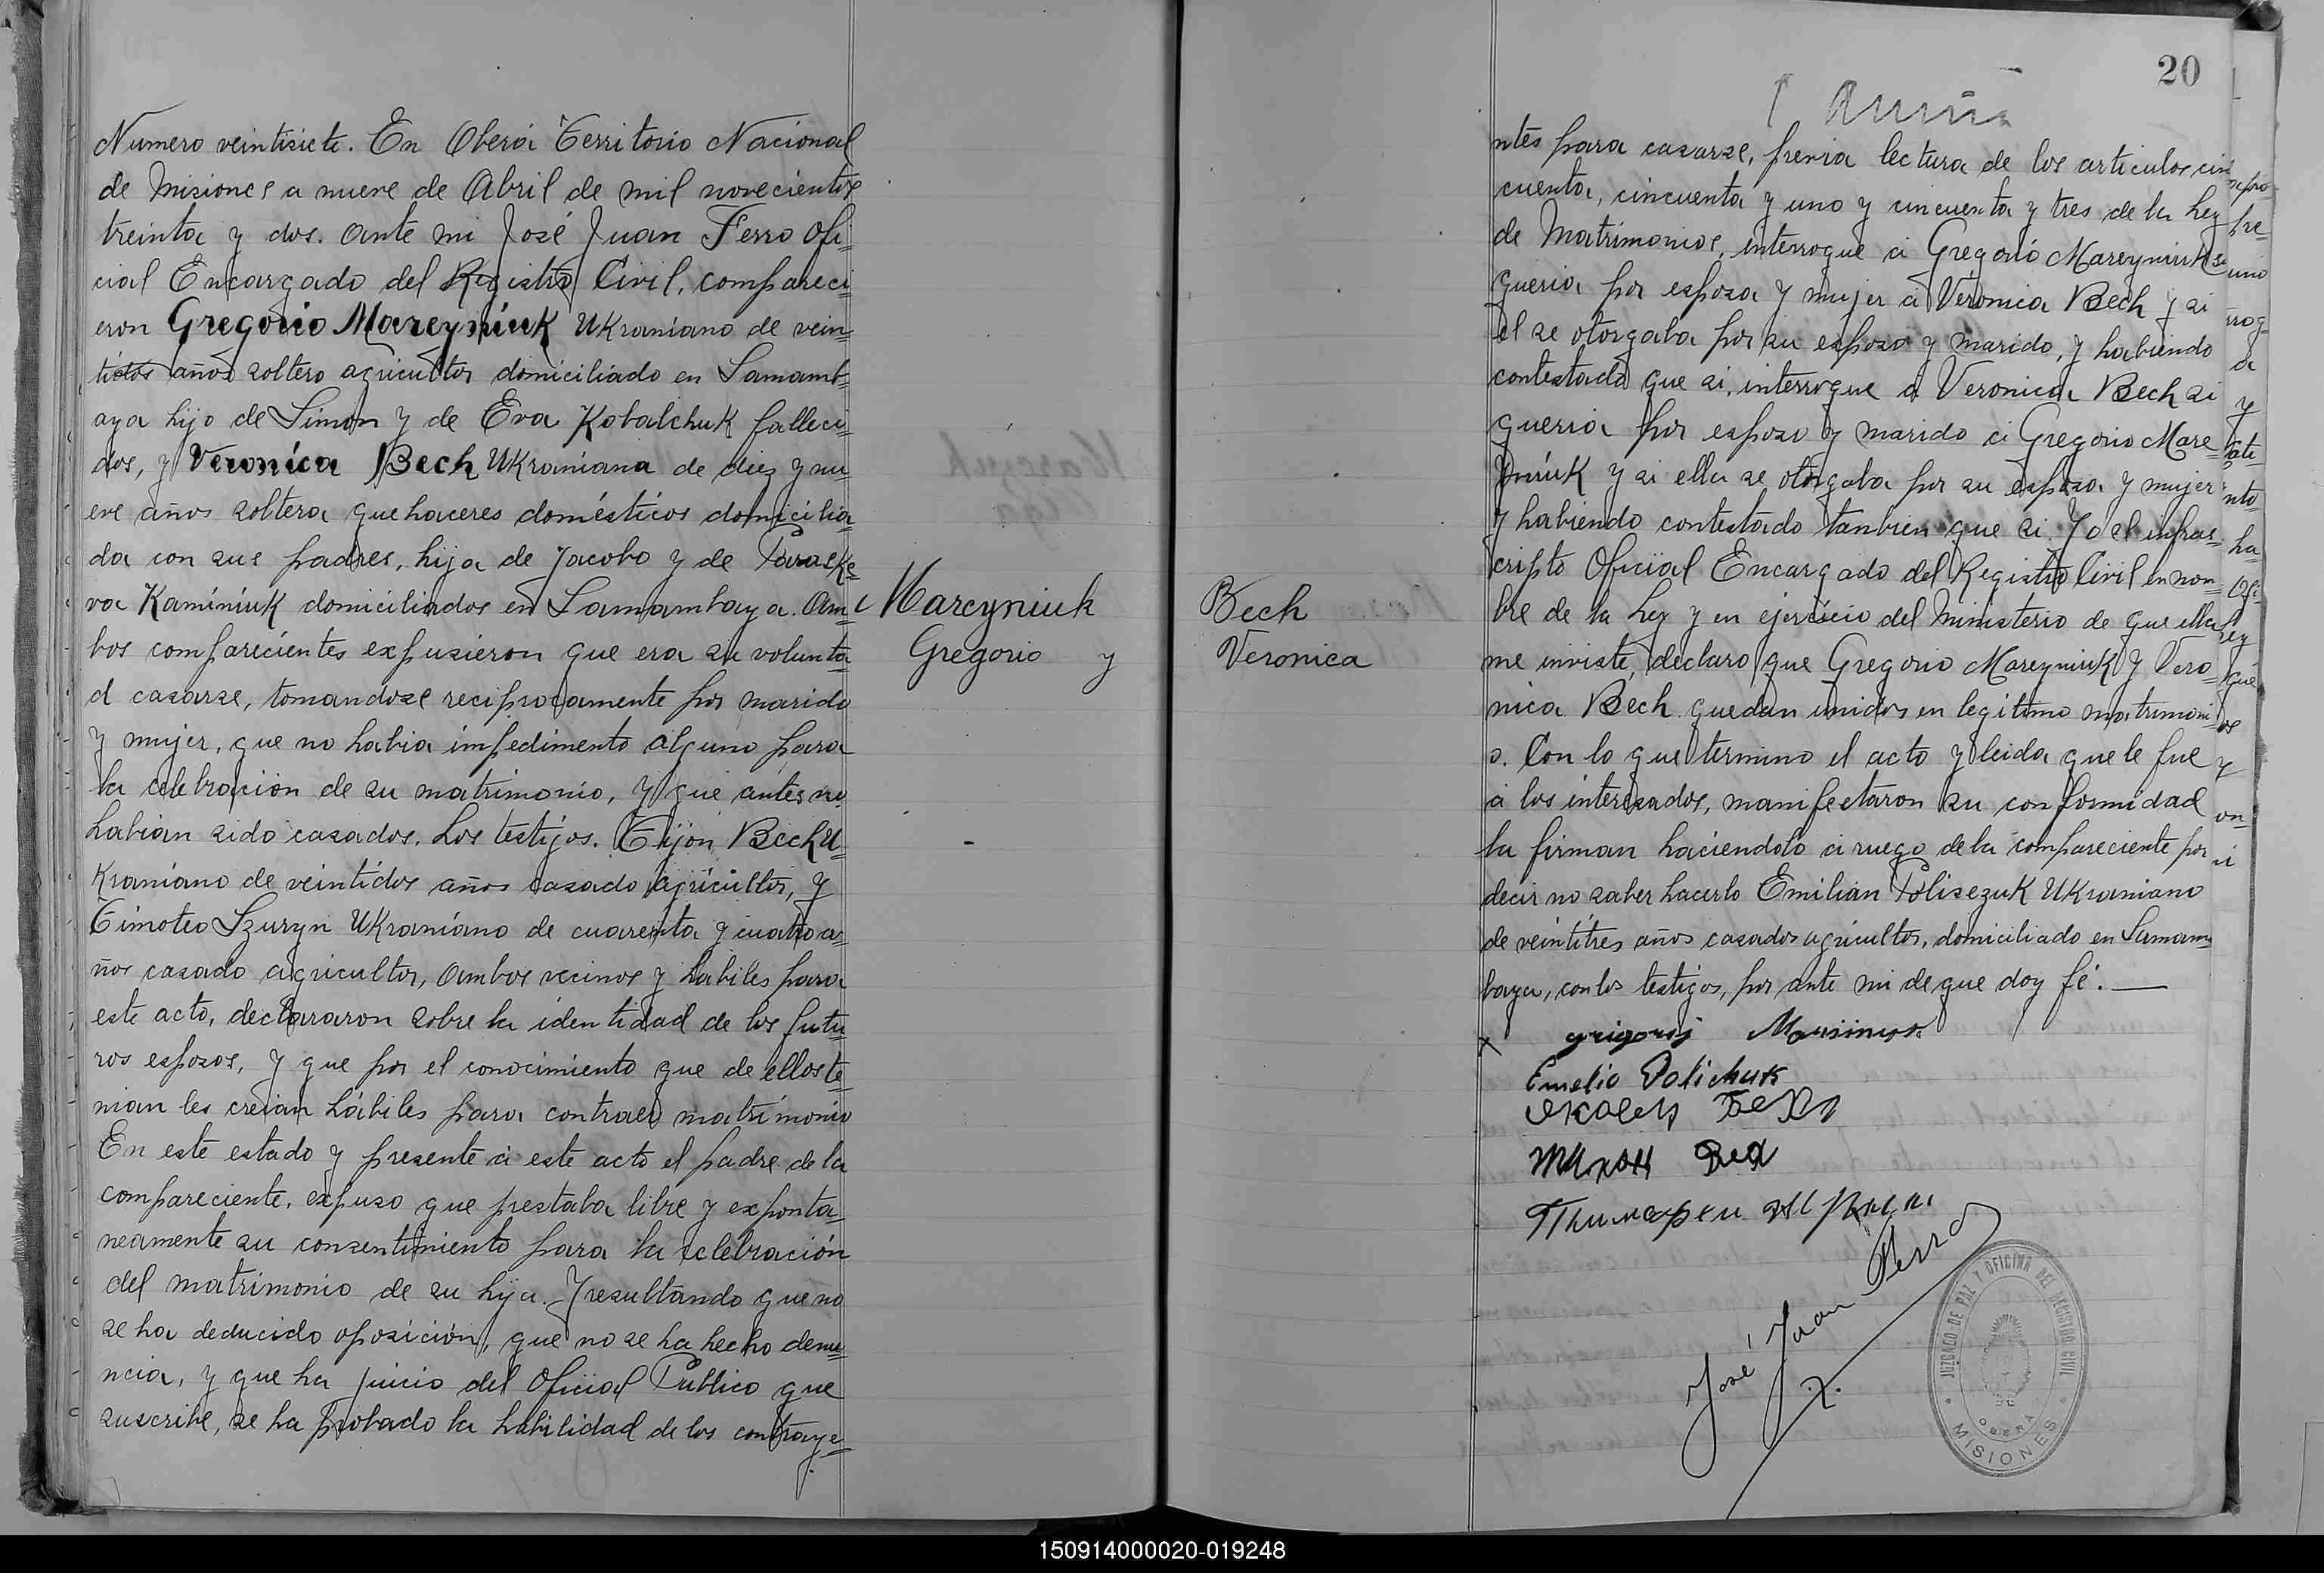 Numero veintisiete. En Oberá Territorio Nacional
de Misiones a nueve de Abril de mil novecientos
treinta y dos. Ante mi José Juan Ferro Ofi=
cial Encargado del Registro Civil, compareci=
eron Gregorio Mareyniuk Ukraniano de vein=
tidos años soltero agricultor domiciliado en Samamb=
aya hijo de Simon y de Eva Kobalchuk falleci=
dos, y Veronica Bech Ukraniana de diez y nu=
eve años soltera quehaceres domésticos domicilia=
da con sus padres, hija de Jacobo y de Paraske=
va Kaminiuk domiciliados en Samambaya. Am=
bos comparecientes expusieron que era su volunta=
d casarse, tomandose reciprocamente por marido
y mujer, que no habia impedimento alguno para
la celebración de su matrimonio, y que antes no
habian sido casados. Los testigos. Tijon Bech U=
kraniano de veintidos años casado agricultor, y
Timoteo Szuryn Ukraniano de cuarenta y cuatro a=
ños casado agricultor, ambos vecinos y habiles para
este acto, declararon sobre la identidad de los futu=
ros esposos, y que por el conocimiento que de ellos te=
nian les creian hábiles para contraer matrimonio
En este estado y presente á este acto el padre de la
compareciente, expuso que prestaba libre y exponta=
neamente su consentimiento para la celebración
del matrimonio de su hija. Y resultando que no
se ha deducido oposición, que no se ha hecho denu=
ncia, y que ha juicio del Oficial Publico que
suscribe, se ha probado la habilidad de los contraye=
Marcyniuk
Gregorio y
Bech
Veronica
20
ntes para casarse, previa lectura de los articulos cin
cuenta, cincuenta y uno y cincuenta y tres de la Ley
de Matrimonios, interrogue á Gregorio Mareyniuk si
queria por esposa y mujer á Veronica Bech y si
el se otorgaba por su esposo y marido, y habiendo
contestado que si, interrogue a Veronica Bech si
queria por esposo y marido á Gregorio Mare=
yniuk y si ella se otorgaba por su esposa y mujer
y habiendo contestado tanbien que si. Yo el infras=
cripto Oficial Encargado del Registro Civil en nom=
bre de la Ley y en ejercicio del Ministerio de que ella
me inviste, declaro que Gregorio Mareyniuk y Vero=
nica Bech quedan unidos en legitimo matrimoni=
o. Con lo que termino el acto y leida que le fue
á los interesados, manifestaron su conformidad
la firman haciendolo á ruego de la compareciente por
decir no saber hacerlo Emilian Polisezuk Ukraniano
de veintitres años casados agricultor, domiciliado en Samam
baya, con los testigos, por ante mi de que doy fé.—
x grigorij
Emelio Polichuk
José Juan Ferro
JUZGADO DE PAZ Y OFICINA DEL REGISTRO CIVIL
OBERÁ
MISIONES
150914000020-019248